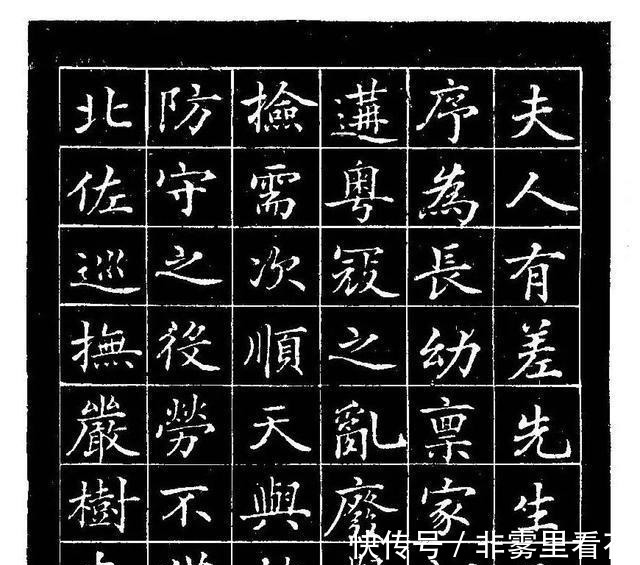 夫人有差先生
序為長幼稟家
遘粵冦之亂廢
檢需次順天與
防守之後勞不
北佐巡撫嚴樹
快传号 / 非雾里看花